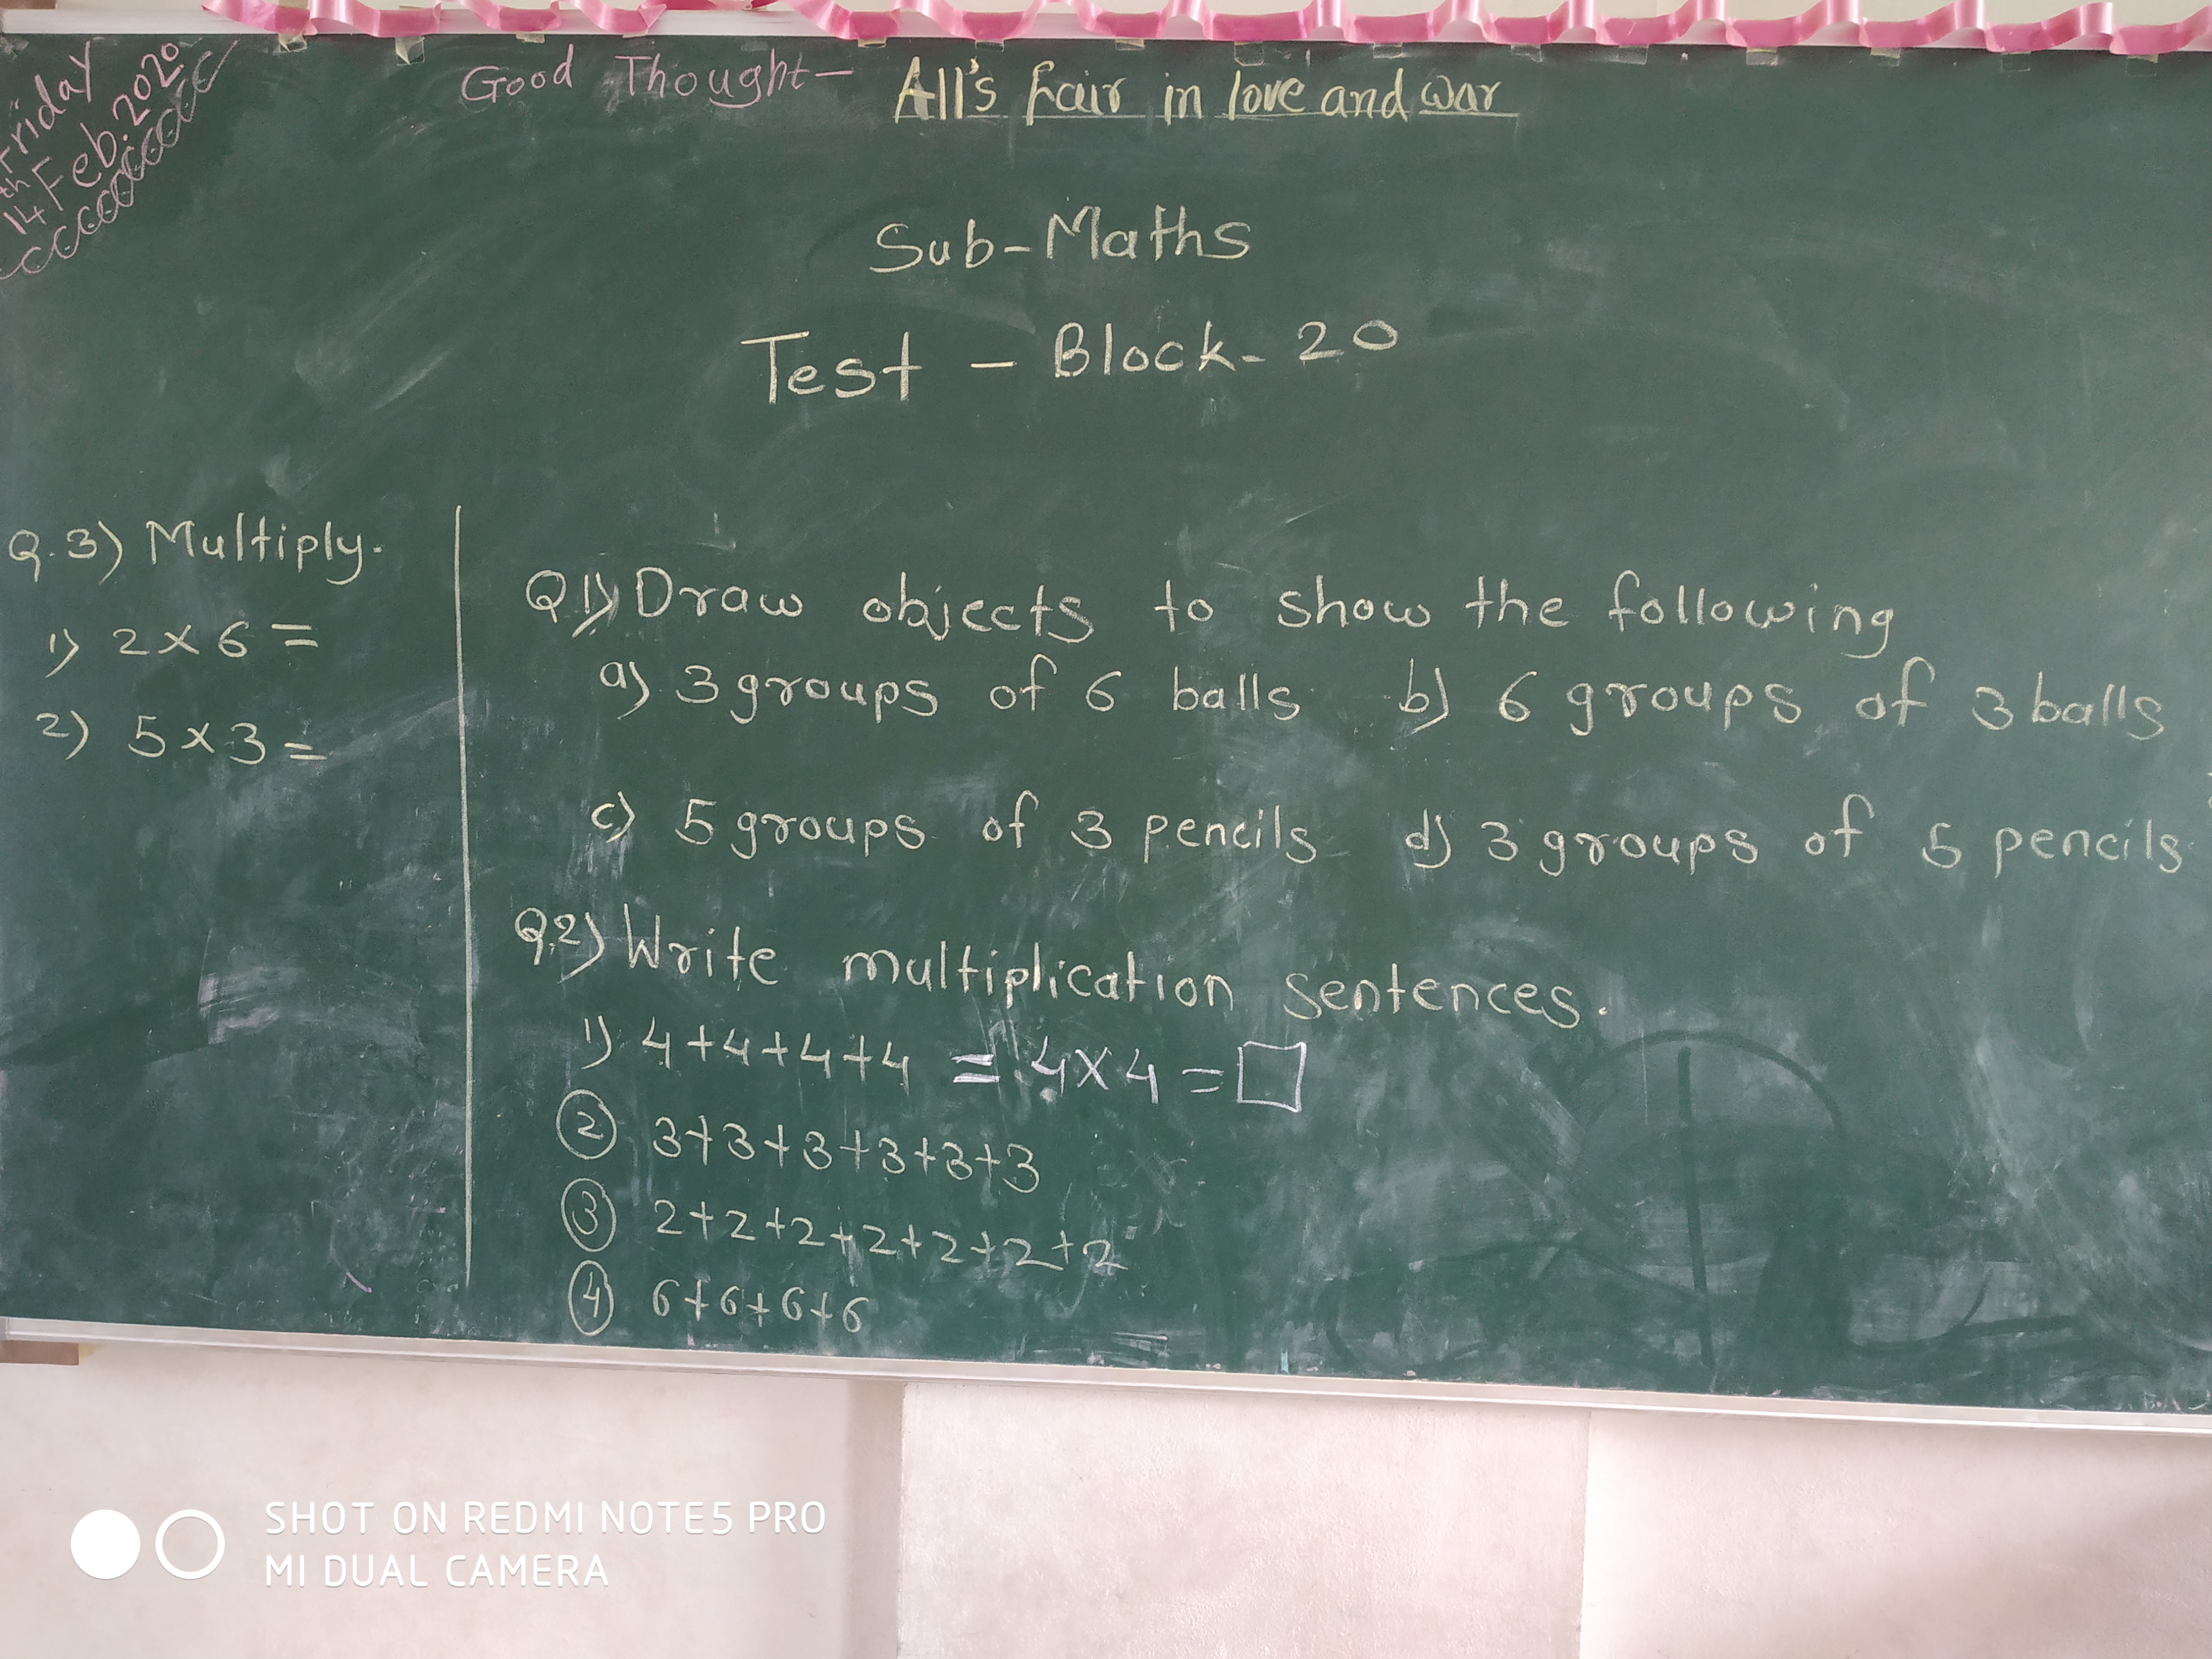 Friday
14th Feb. 2020
Good Thought - All's fair in love and war
Sub-Maths
Test - Block-20
Q.3) Multiply.
1) 2×6=
2) 5×3=
Q1) Draw objects to show the following
a) 3 groups of 6 balls b) 6 groups of 3 balls
c) 5 groups of 3 pencils d) 3 groups of 5 pencils
Q.2) Write multiplication sentences.
1) 4+4+4+4 = 4×4 = □
② 3+3+3+3+3+3
③ 2+2+2+2+2+2+2
④ 6+6+6+6
SHOT ON REDMI NOTE5 PRO
MI DUAL CAMERA